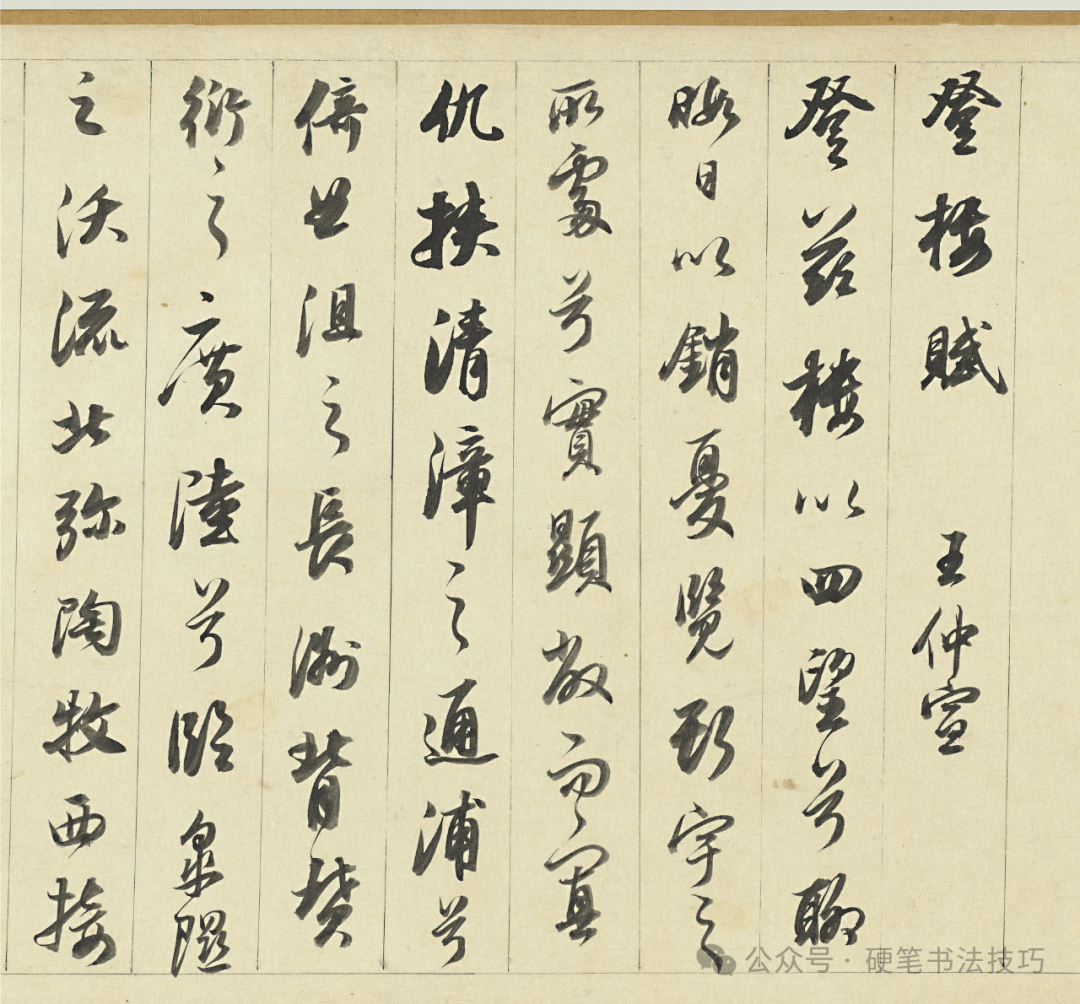 登樓賦 王仲宣
登茲樓以四望兮聊
暇日以銷憂覽斯宇之
所處兮實顯敞而寡
仇挾清漳之通浦兮
倚曲沮之長洲背墳
衍之廣陸兮臨皋隰
之沃流北弥陶牧西接
公众号·硬笔书法技巧